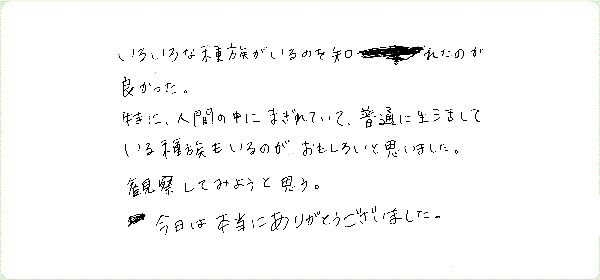 いろいろな種族がいるのを知れたのが
良かった。
特に、人間の中にまぎれていて、普通に生活して
いる種族もいるのが、おもしろいと思いました。
観察してみようと思う。
今日は本当にありがとうございました。